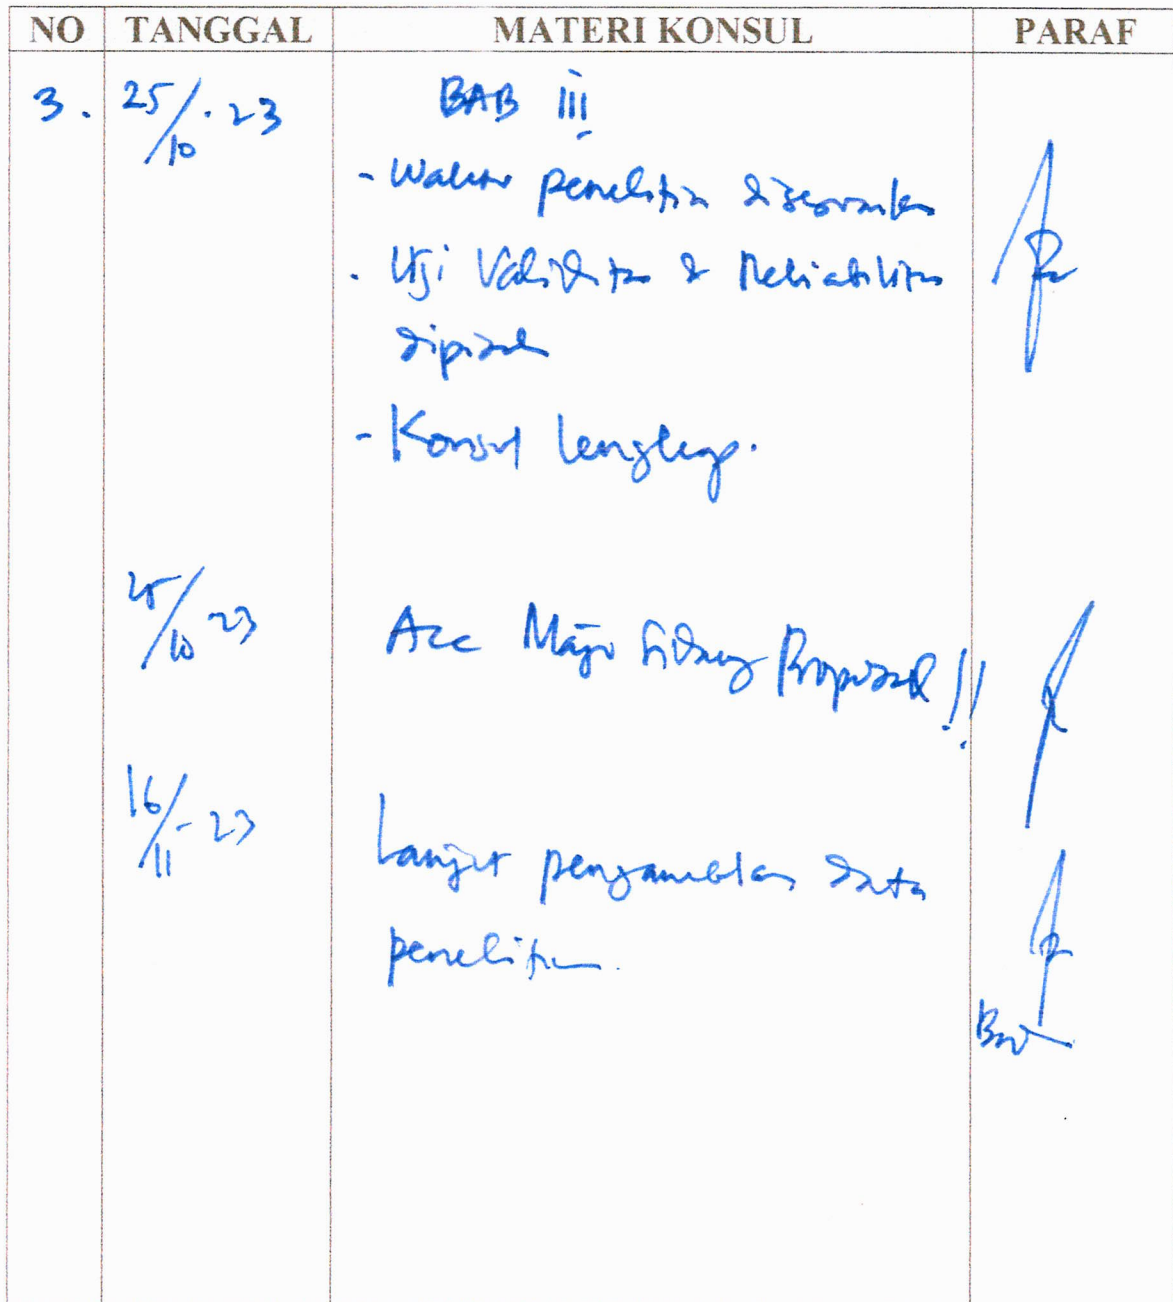 NO TANGGAL MATERI KONSUL PARAF
3. 25/10.23 BAB III
- Waktu penelitian disesuaikan
- Uji Validitas & Reliabilitas
dipisah
- Konsul lengkap.
25/10 23 Acc Maju Sidang Proposal !!
16/11-23
Lanjut pengambilan data
penelitian.